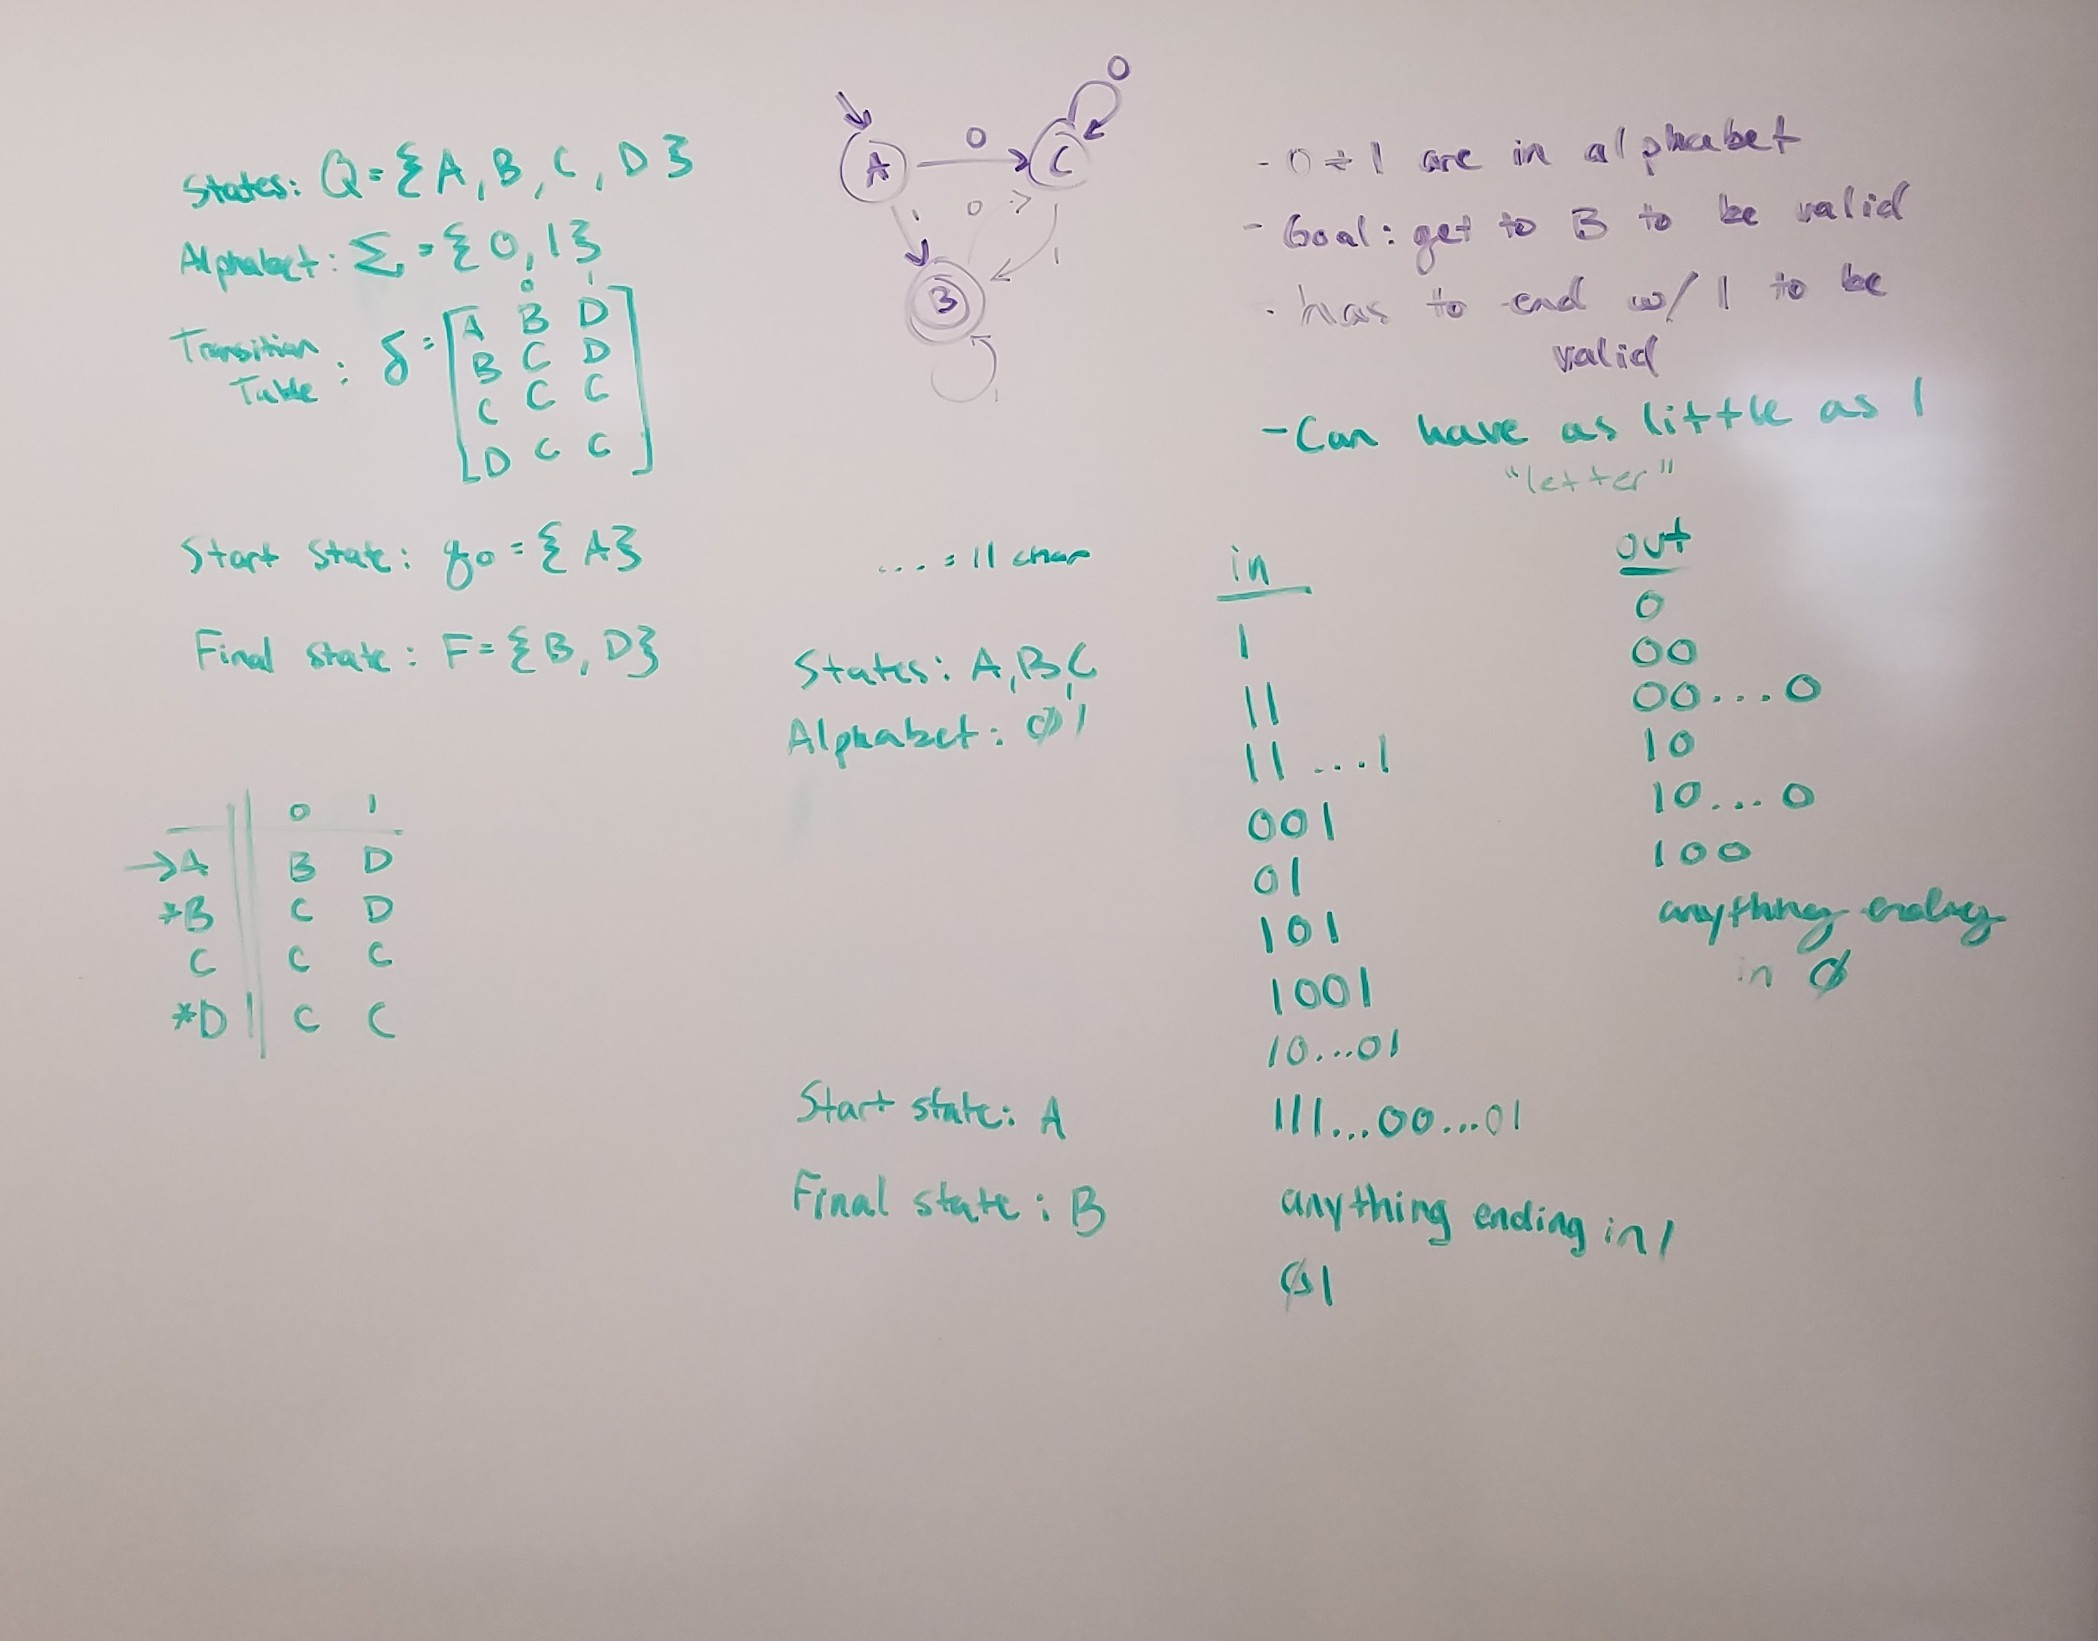 States: Q = {A, B, C, D}
Alphabet: Σ = {0, 1}
0 1
Transition Table: δ = [A B D
B C D
C C C
D C C]
Start State: q0 = {A}
Final state: F = {B, D}
0 1
→A B D
*B C D
C C C
*D C C
0
A 0 C
1 0 1
B
1
... = 11 char
States: A, B, C
Alphabet: Ø, 1
Start state: A
Final state: B
- 0 + 1 are in alphabet
- Goal: get to B to be valid
- has to end w/ 1 to be
valid
- Can have as little as 1
"letter"
in
1
11
11...1
001
01
101
1001
10...01
111...00...01
anything ending in 1
Ø1
out
0
00
00...0
10
10...0
100
anything ending
in Ø